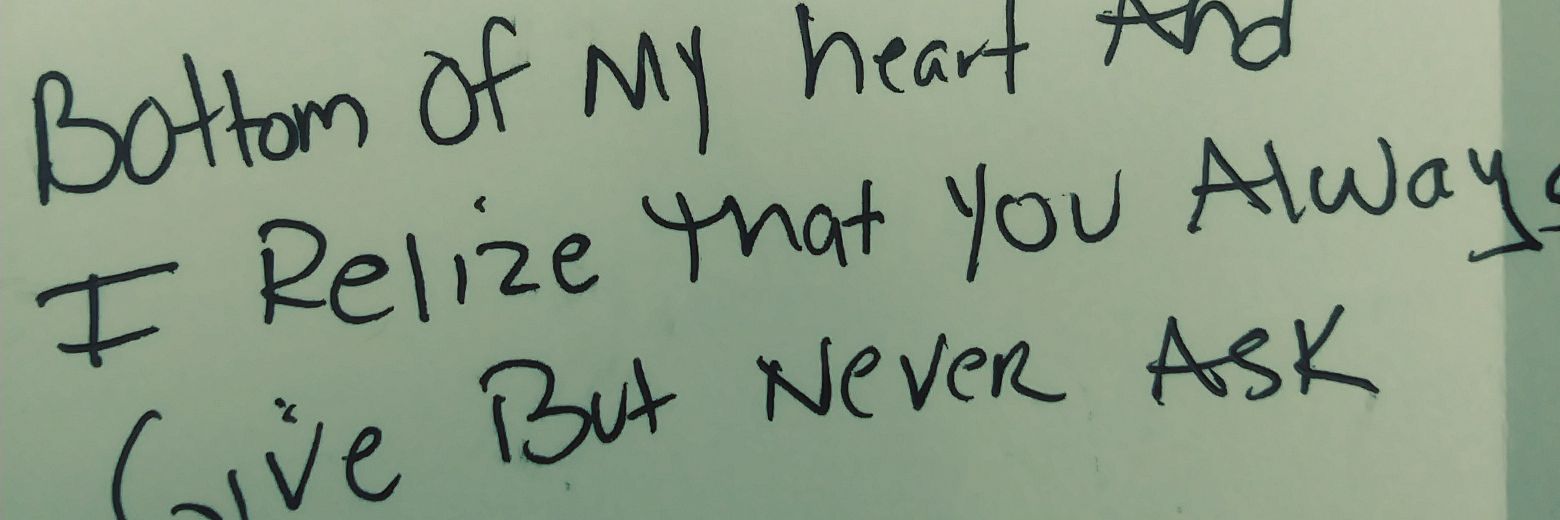 Bottom Of My heart And
I Relize that you Always
Give But Never Ask